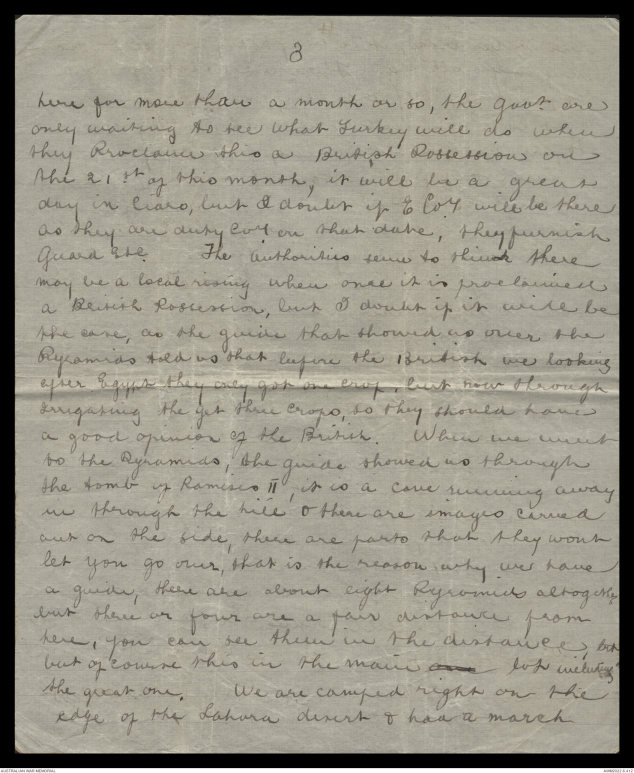 3
here for more than a month or so, the govt. are
only waiting to see what Turkey will do when
they Proclaim this a British Possession on
the 21st of this month, it will be a great
day in Ciaro, but I doubt if E Coy will be there
as they are duty Coy on that date, they furnish
Guard etc. The authorities seem to think there
may be a local rising when once it is proclaimed
a British Possession, but I doubt if it will be
the case, as the guide that showed us over the
Pyramids told us that before the British were looking
after Egypt they only got one crop, but now through
irrigating the get three crops, so they should have
a good opinion of the British. When we went
to the Pyramids, the guide showed us through
the tomb of Ramises II, it is a cave running away
in through the hill & there are images carved
out on the side, there are parts that they wont
let you go over, that is the reason why we have
a guide, there are about eight Pyramids altogether
but three or four are a fair distance from
here, you can see them in the distance,
but of course this in the main lot including
the great one. We are camped right on the
edge of the Sahara desert & had a march
AUSTRALIAN WAR MEMORIAL